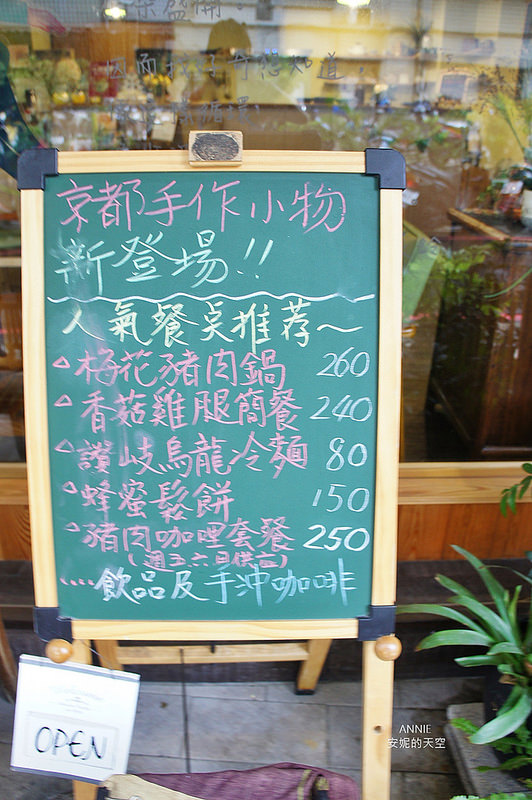 因而我好奇想知道，
京都手作小物
新登場!!
人氣餐点推荐～
△梅花豬肉鍋 260
△香菇雞腿簡餐 240
△讚岐烏龍冷麵 80
△蜂蜜鬆餅 150
△豬肉咖哩套餐 250
(週五六日供应)
....飲品及手沖咖啡
OPEN
ANNIE
安妮的天空